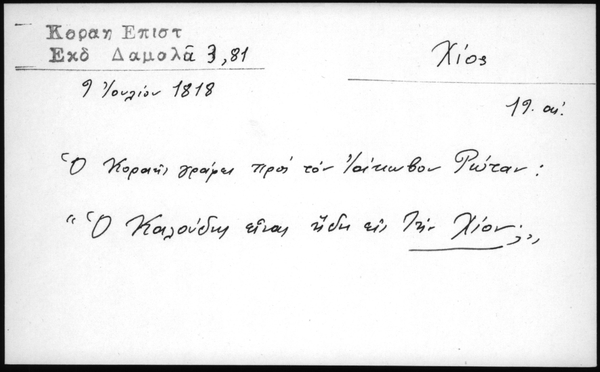 Κοραη Επιστ
Εκδ Δαμαλᾶ 3,81
Χίος
9 Ἰουλίου 1818
19. αἰ.
Ὁ Κοραῆς γράφει πρός τόν Ἰάκωβον Ρώταν:
"Ὁ Καλούδης εἶναι ἤδη εἰς τήν Χίον;,,